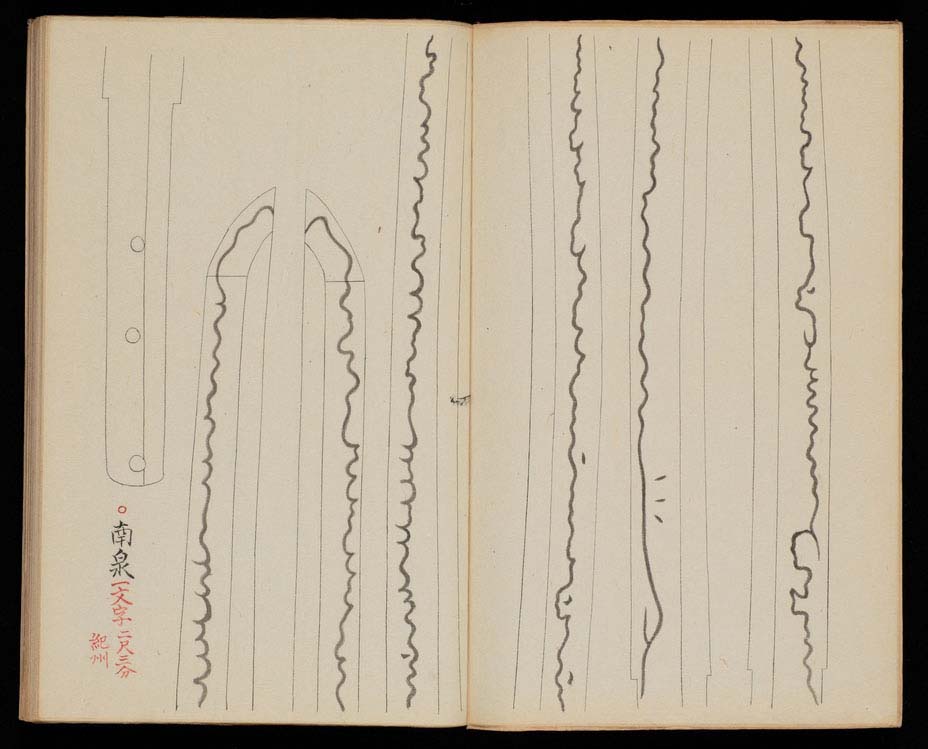 南泉 一文字 二尺三分
紀州